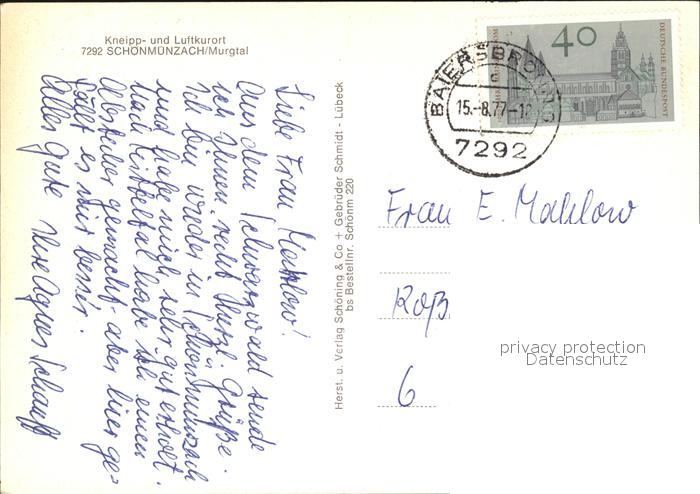 Kneipp- und Luftkurort
7292 SCHÖNMÜNZACH/Murgtal
Liebe Frau Machlow!
Aus dem Schwarzwald sende
ich Ihnen recht herzl. Grüße.
Ich bin wieder in Schönmünzach
und habe mich sehr gut erholt.
Nach habe ich einen
Abstecher gemacht - aber hier ge-
fällt es mir besser.
Alles Gute Ihre Agnes Schauff
Herst. u. Verlag Schöning & Co + Gebrüder Schmidt - Lübeck
bs Bestellnr. Schönm 220
BAIERSBRONN
15.-8.77-12
7292
40
DEUTSCHE BUNDESPOST
Frau E. Machlow
Roß
6
privacy protection
Datenschutz